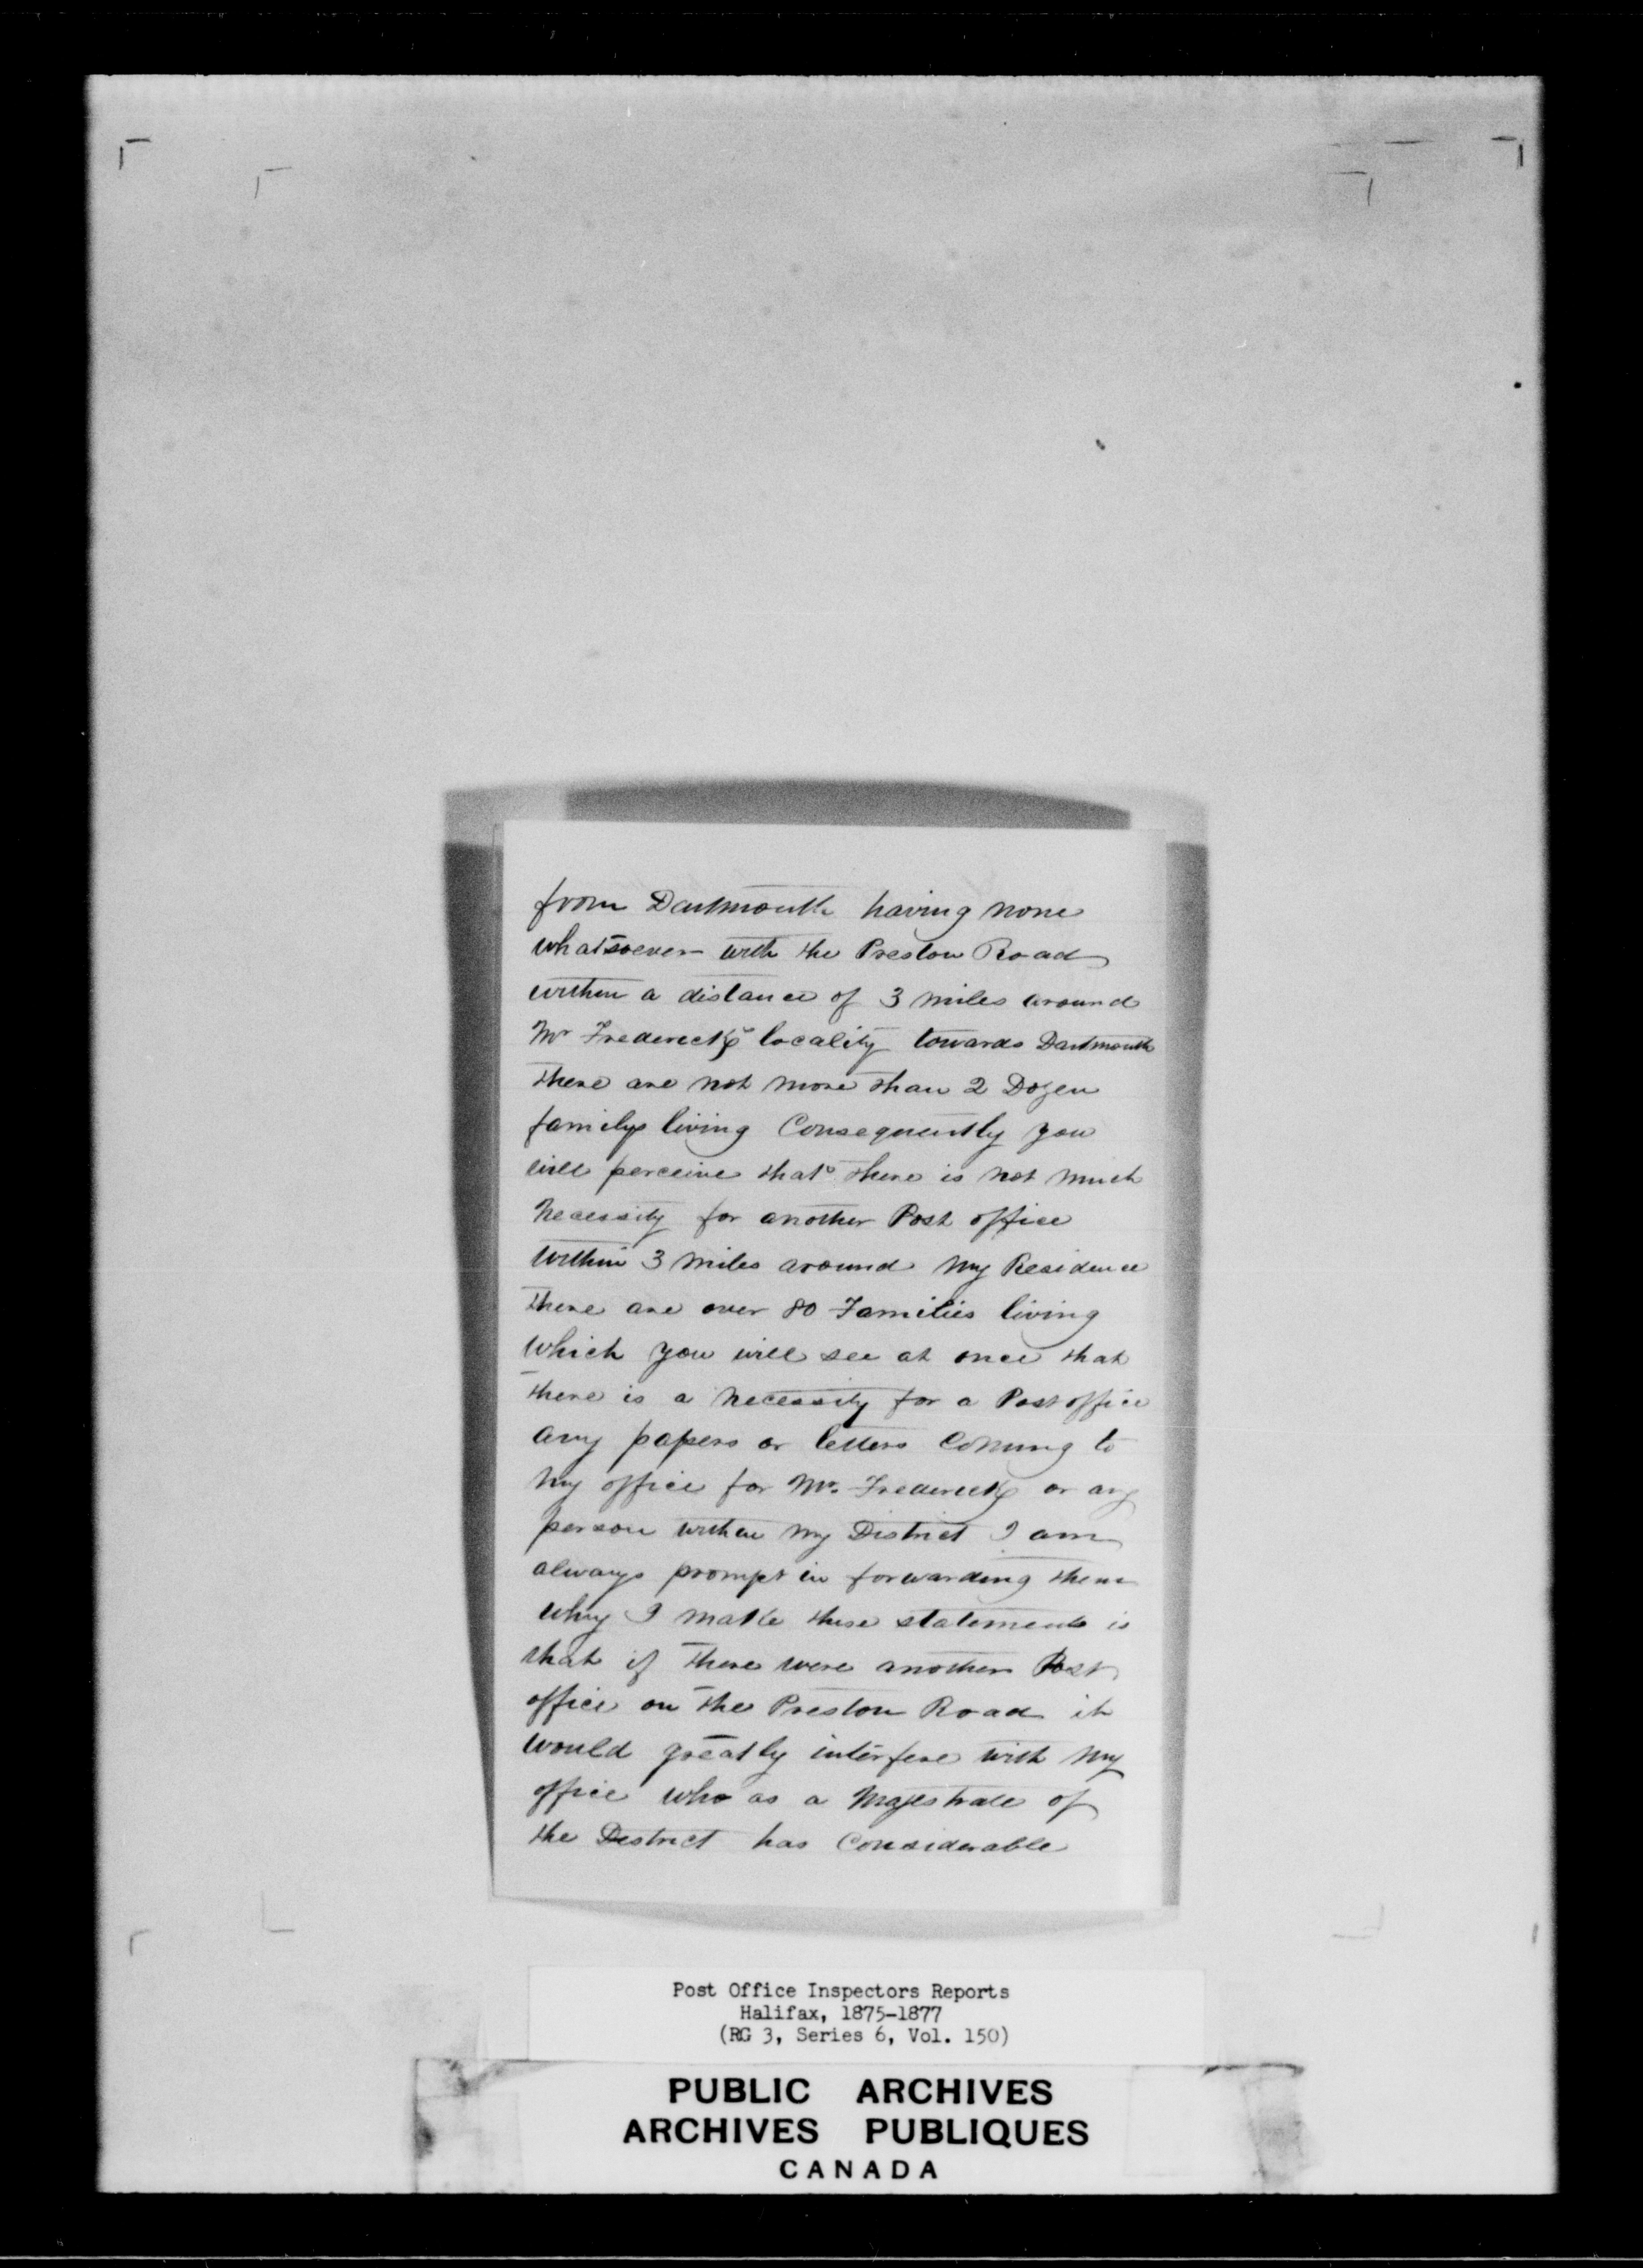 from Dartmouth having none
whatsoever with the Preston Road
within a distance of 3 miles around
Mr Fredericks locality towards Dartmouth
there are not more than 2 Dozen
familys living Consequently you
will perceive that there is not much
necessity for another Post office
within 3 miles around my Residence
there are over 80 Families living
which you will see at once that
there is a necessity for a Post office
any papers or letters Comming to
my office for Mr. Fredericks or any
person within my District I am
always prompt in forwarding them
why I make these statements is
that if there were another Post
office on the Preston Road it
would greatly interfere with my
office who as a Majestrate of
the District has Considerable
Post Office Inspectors Reports
Halifax, 1875-1877
(RG 3, Series 6, Vol. 150)
PUBLIC ARCHIVES
ARCHIVES PUBLIQUES
CANADA